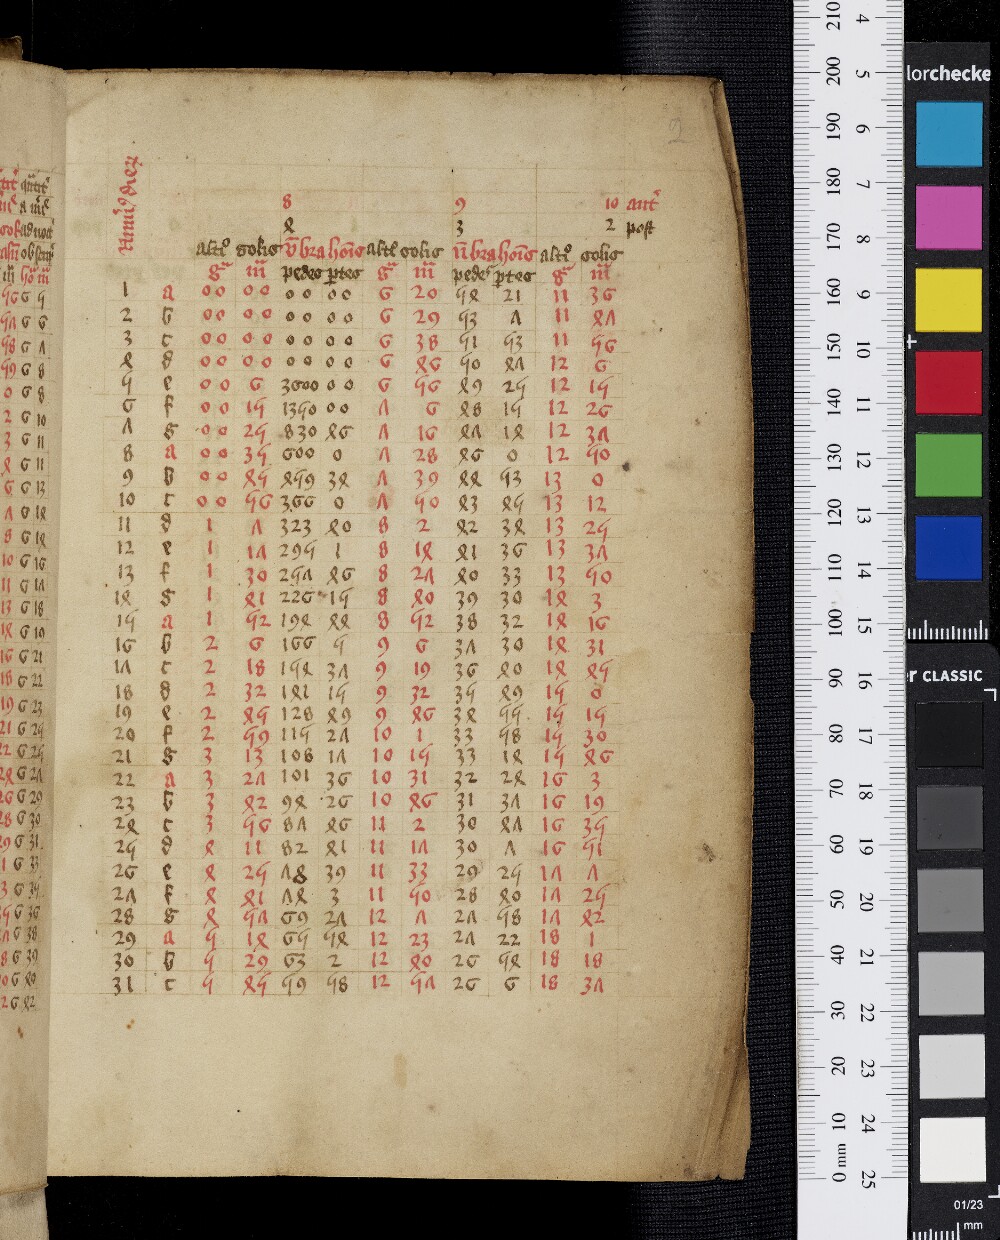 Numꝰ dieꝝ
8 9 10 ant
4 3 2 post
altꝰ solis ūbra hoīs altꝰ solis ūbra hoīs altꝰ solis
g m pedes ptes g m pedes ptes g m
1 a 00 00 00 00 6 20 54 21 11 36
2 b 00 00 00 00 6 29 53 7 11 47
3 c 00 00 00 00 6 38 51 53 11 56
4 d 00 00 00 00 6 46 50 47 12 6
5 e 00 6 3600 00 6 56 49 25 12 15
6 f 00 15 1350 00 7 6 48 15 12 26
7 g 00 25 830 46 7 16 47 14 12 37
8 a 00 35 600 0 7 28 46 0 12 50
9 b 00 45 459 34 7 39 44 53 13 0
10 c 00 56 366 0 7 50 43 45 13 12
11 d 1 7 323 40 8 2 42 34 13 25
12 e 1 17 295 1 8 14 41 36 13 37
13 f 1 30 257 46 8 27 40 33 13 50
14 g 1 41 226 15 8 40 39 30 14 3
15 a 1 52 194 44 8 52 38 32 14 16
16 b 2 6 166 5 9 6 37 30 14 31
17 c 2 18 154 37 9 19 36 40 14 45
18 d 2 32 141 15 9 32 35 49 15 0
19 e 2 45 128 49 9 46 34 55 15 15
20 f 2 59 115 27 10 1 33 58 15 30
21 g 3 13 108 17 10 15 33 14 15 46
22 a 3 27 101 36 10 31 32 24 16 3
23 b 3 42 94 26 10 46 31 37 16 19
24 c 3 56 87 46 11 2 30 47 16 35
25 d 4 11 82 41 11 17 30 7 16 51
26 e 4 25 78 39 11 33 29 25 17 7
27 f 4 41 74 3 11 50 28 40 17 25
28 g 4 57 69 27 12 7 27 58 17 42
29 a 5 14 65 54 12 23 27 22 18 1
30 b 5 29 63 2 12 40 26 54 18 18
31 c 5 45 59 58 12 57 26 6 18 37
lorchecke
r CLASSIC
01/23
mm
210 200 190 180 170 160 150 140 130 120 110 100 90 80 70 60 50 40 30 20 10 mm 0
4 5 6 7 8 9 10 11 12 13 14 15 16 17 18 19 20 21 22 23 24 25